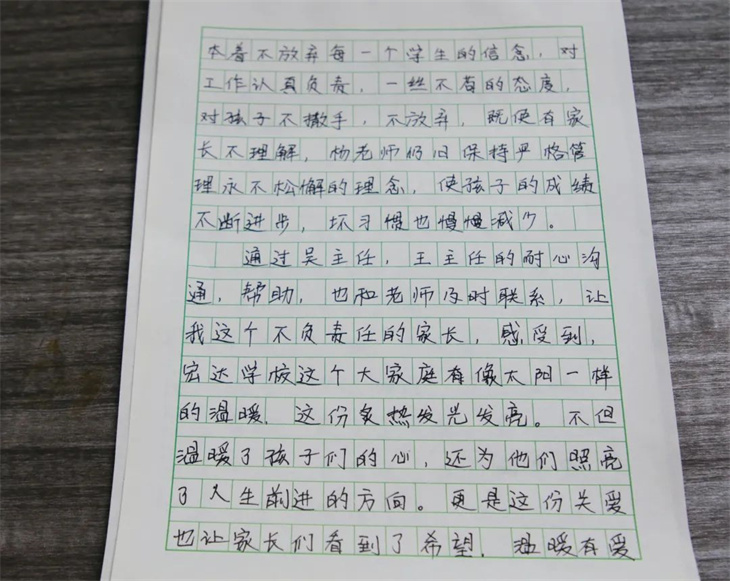 本着不放弃每一个学生的信念，对
工作认真负责，一丝不苟的态度，
对孩子不撒手，不放弃，既使有家
长不理解，杨老师仍旧保持严格管
理永不松懈的理念，使孩子的成绩
不断进步，坏习惯也慢慢减少。
通过吴主任，王主任的耐心沟
通，帮助，也和老师及时联系，让
我这个不负责任的家长，感受到，
宏达学校这个大家庭有像太阳一样
的温暖，这份炙热发光发亮。不但
温暖了孩子们的心，还为他们照亮
了人生前进的方向。更是这份关爱
也让家长们看到了希望，温暖有爱